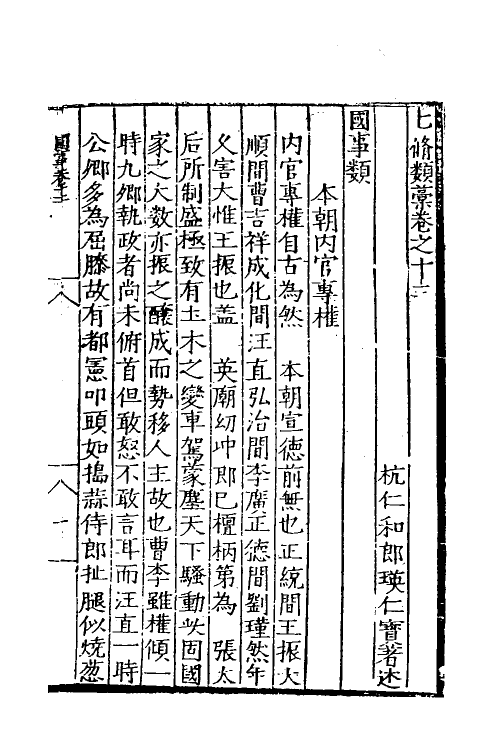 七修類藁卷之十三
杭仁和郎瑛仁寶著述
國事類
本朝內官專權
內官專權自古為然 本朝宣德前無也正統間王振天
順間曹吉祥成化間汪直弘治間李廣正德間劉瑾然年
乆害大惟王振也盖 英廟幼冲即已檀柄第為 張太
后所制盛極致有土木之變車駕蒙塵天下騷動此固國
家之大數亦振之釀成而勢移人主故也曹李雖權傾一
時九卿執政者尚未俯首但敢怒不敢言耳而汪直一時
公卿多為屈膝故有都憲叩頭如搗蒜侍郎扯腿似燒葱
國事卷十三